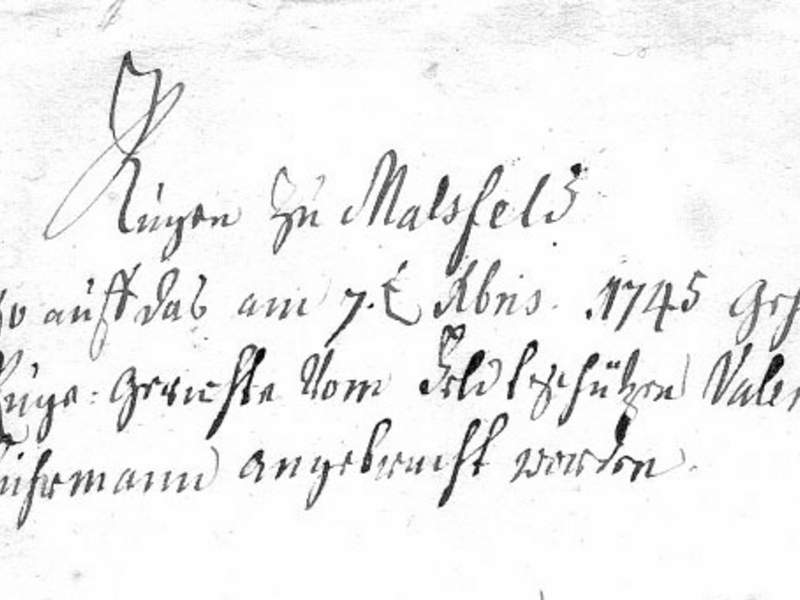 Rügen zu Malsfeld
so auff das am 7.t Xbris. 1745 geh
Rüge-Gerichte vom Feldtschützen Valen
Fuhrmann angebracht worden.